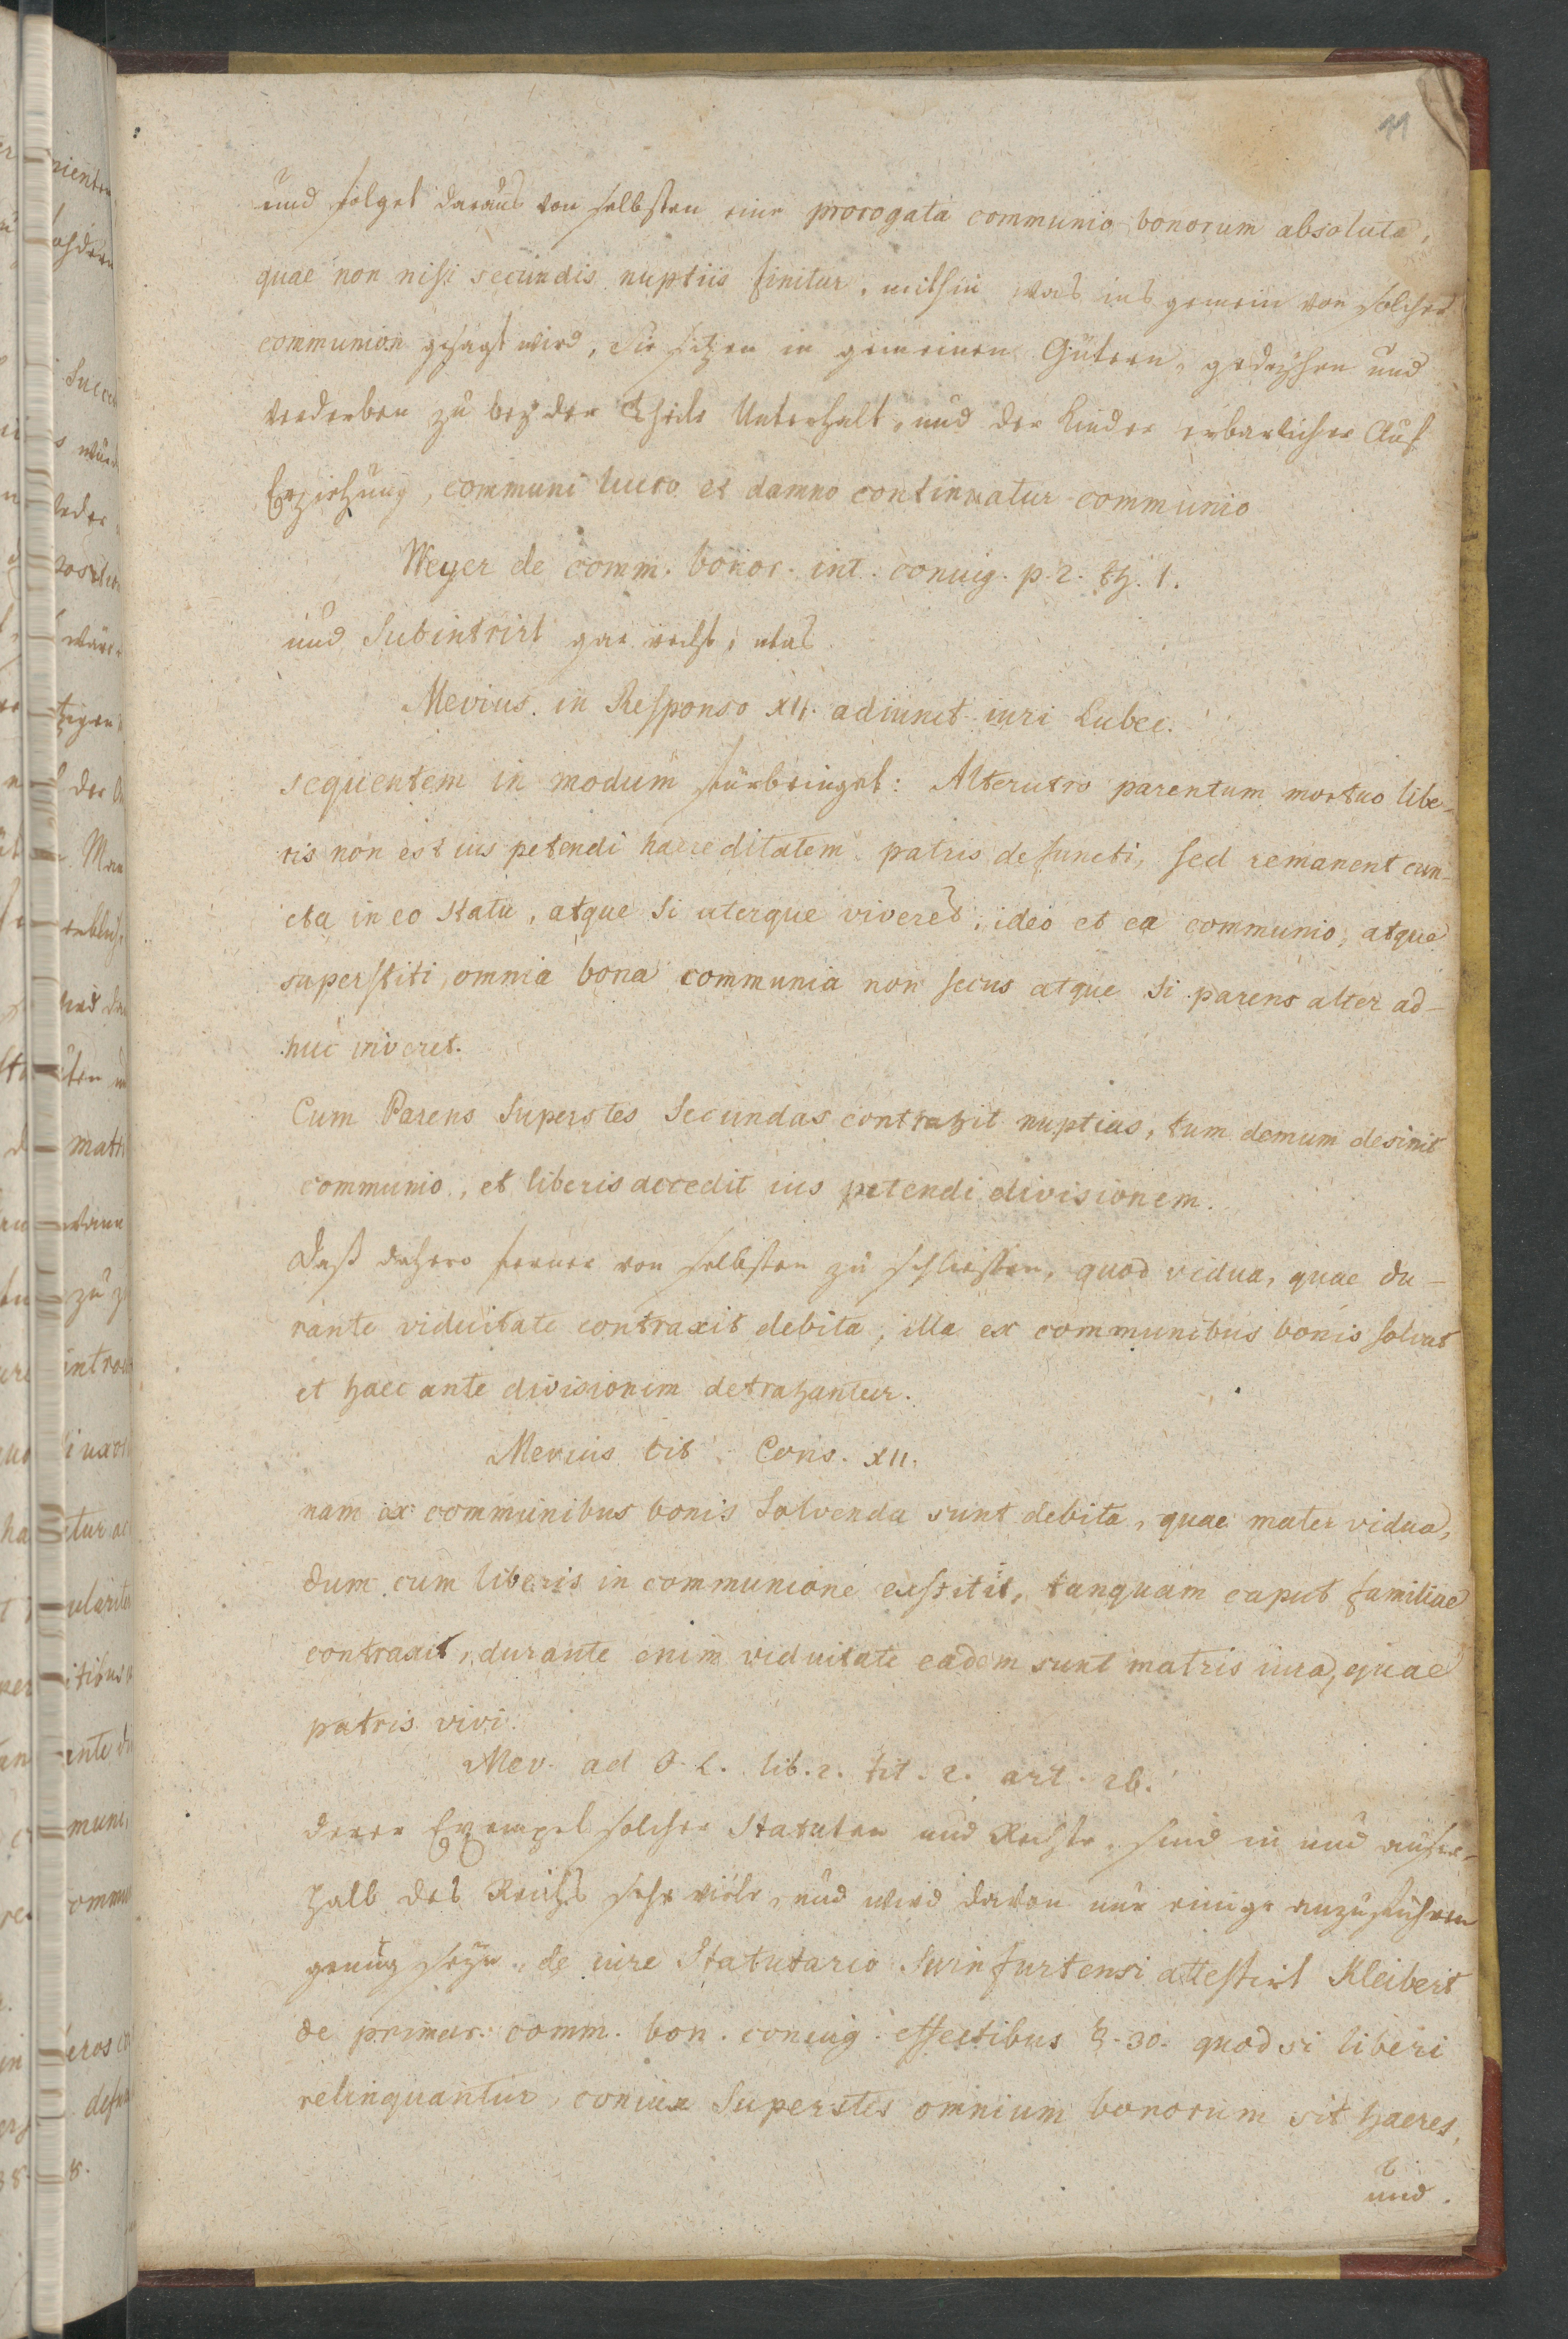 11
und folget daraus von selbsten eine prorogata communio bonorum absoluta,
quae non nisi secundis nuptiis finitur, mithin was ins gemein von solcher
communion gesagt wird, Sie sitzen in gemeinen Gütern, gedeyhen und
verderben zu beyder Theile Unterhalt, und der Kinder erbarlicher Auf
Erziehung, communi lucro et damno continuatur communio
Weyer de comm. bonor. int. coniug. p. 2. th. 1.
und Subintrirt gar recht, was
Mevius in Responso XII. adiunct. iuri Lubec.
sequentem in modum fürbringet: Alterutro parentum mortuo libe-
ris non est ius petendi haereditatem patris defuncti, sed remanent cun-
cta in eo statu, atque si uterque viveret, ideo et ea communio, atque
superstiti omnia bona communia non secus atque si parens alter ad-
huc viveret.
Cum Parens Superstes Secundas contrahit nuptias, tum demum desinit
communio, et liberis accedit ius petendi divisionem.
Daß dahero ferner von selbsten zu schliessen, quod vidua, quae du-
rante viduitate contraxit debita, illa ex communibus bonis solvat
et haec ante divisionem detrahantur.
Mevius cit. Cons. XII.
nam ex communibus bonis Solvenda sunt debita, quae mater vidua,
dum cum liberis in communione exstitit, tanquam caput familiae
contraxit, durante enim viduitate eadem sunt matris iura, quae
patris vivi.
Mev. ad J. L. lib. 2. tit. 2. art. 26.
Derer Exempel solcher Statuten und Rechte, sind in und ausser-
halb des Reichs sehr viele, und wird davon nur einige anzuführen
genug seyn. de iure Statutario Suinfurtensi attestirt Kleibert
de primar. comm. bon. coniug. effectibus §. 30. quod si liberi
relinquantur, coniux Superstes omnium bonorum sit haeres,
und